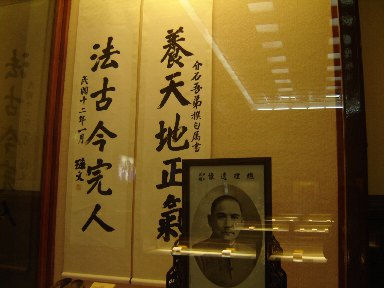 養天地正氣
介石吾弟撰句屬書
法古今完人
民國十二年一月
孫文
總理遺像